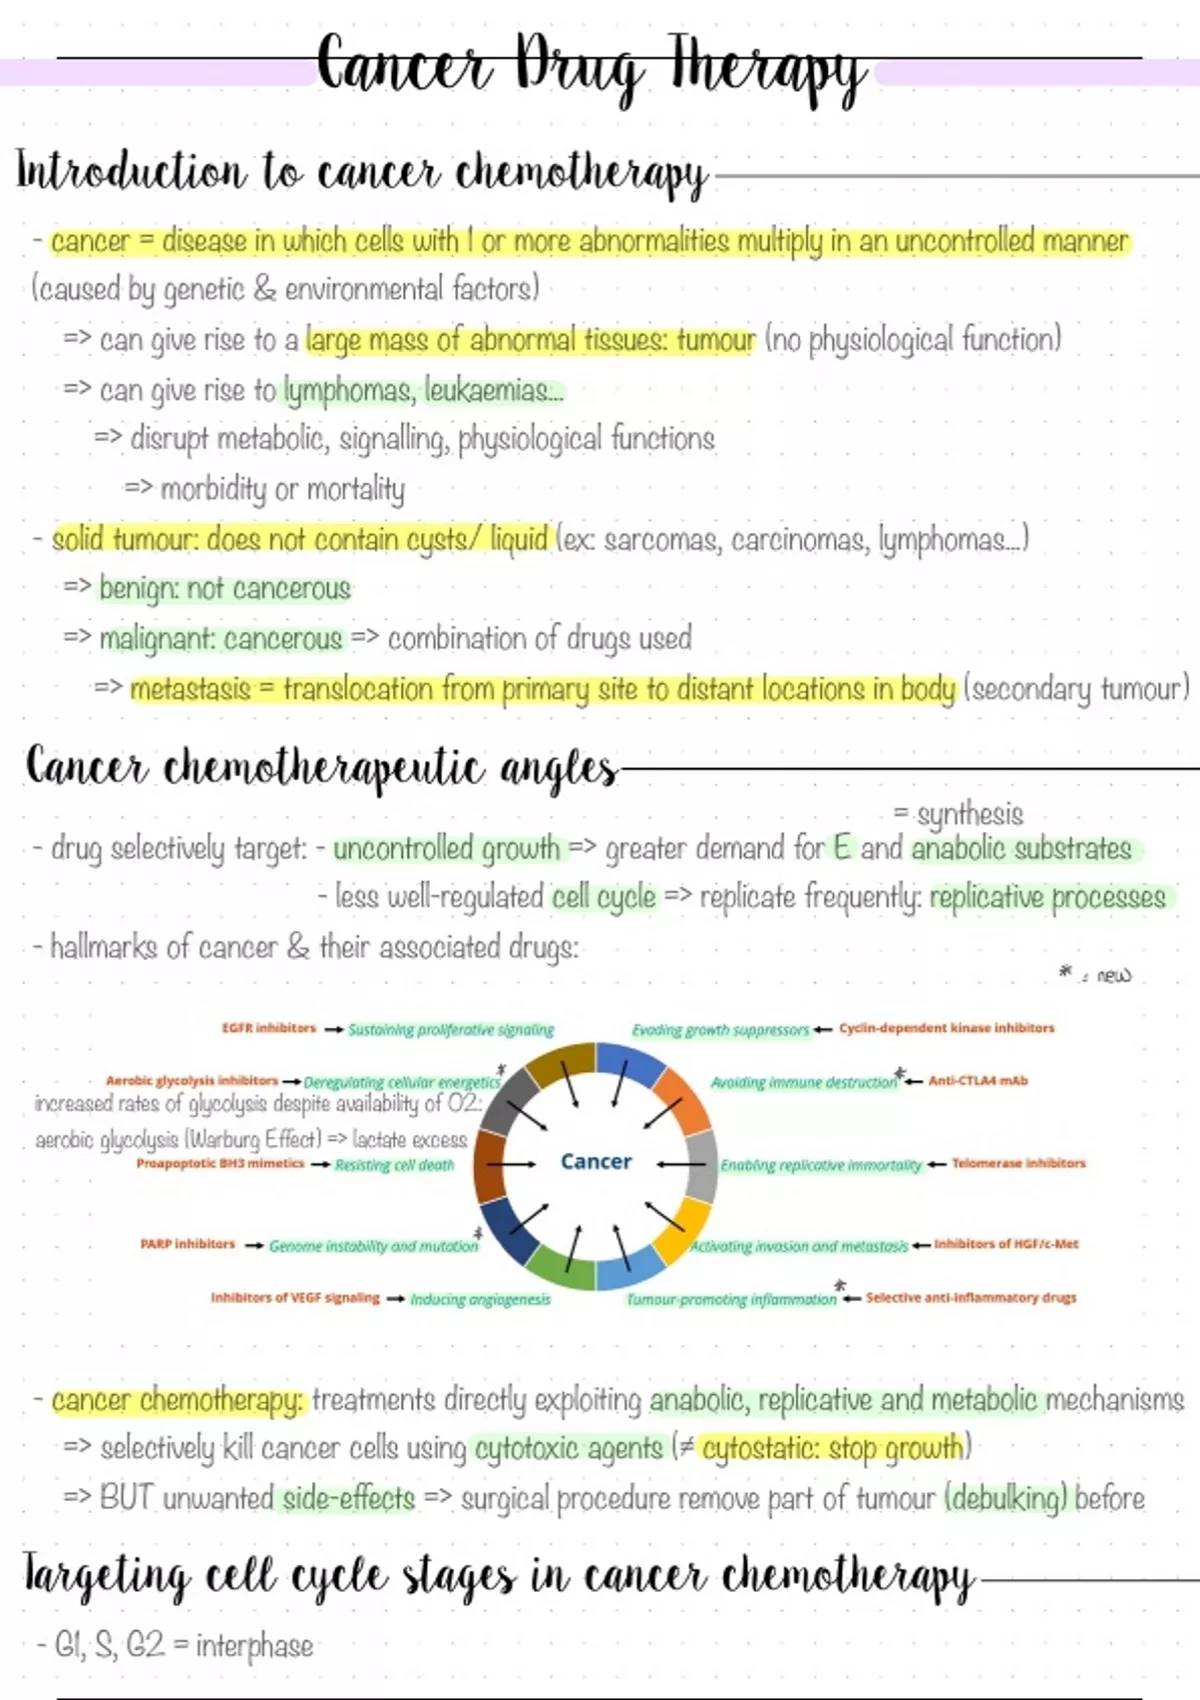 Cancer Drug Therapy
Introduction to cancer chemotherapy
- cancer = disease in which cells with 1 or more abnormalities multiply in an uncontrolled manner
(caused by genetic & environmental factors)
=> can give rise to a large mass of abnormal tissues: tumour (no physiological function)
=> can give rise to lymphomas, leukaemias...
=> disrupt metabolic, signalling, physiological functions
=> morbidity or mortality
- solid tumour: does not contain cysts/ liquid (ex: sarcomas, carcinomas, lymphomas...)
=> benign: not cancerous
=> malignant: cancerous => combination of drugs used
=> metastasis = translocation from primary site to distant locations in body (secondary tumour)
Cancer chemotherapeutic angles
= synthesis
- drug selectively target: - uncontrolled growth => greater demand for E and anabolic substrates
- less well-regulated cell cycle => replicate frequently: replicative processes
- hallmarks of cancer & their associated drugs:
* : new
EGFR inhibitors → Sustaining proliferative signaling
Evading growth suppressors ← Cyclin-dependent kinase inhibitors
Aerobic glycolysis inhibitors → Deregulating cellular energetics *
Avoiding immune destruction * ← Anti-CTLA4 mAb
increased rates of glycolysis despite availability of O2:
aerobic glycolysis (Warburg Effect) => lactate excess
Proapoptotic BH3 mimetics → Resisting cell death
Cancer
Enabling replicative immortality ← Telomerase inhibitors
PARP inhibitors → Genome instability and mutation *
Activating invasion and metastasis ← Inhibitors of HGF/c-Met
Inhibitors of VEGF signaling → Inducing angiogenesis
Tumour-promoting inflammation * ← Selective anti-inflammatory drugs
- cancer chemotherapy: treatments directly exploiting anabolic, replicative and metabolic mechanisms
=> selectively kill cancer cells using cytotoxic agents (≠ cytostatic: stop growth)
=> BUT unwanted side-effects => surgical procedure remove part of tumour (debulking) before
Targeting cell cycle stages in cancer chemotherapy
- G1, S, G2 = interphase